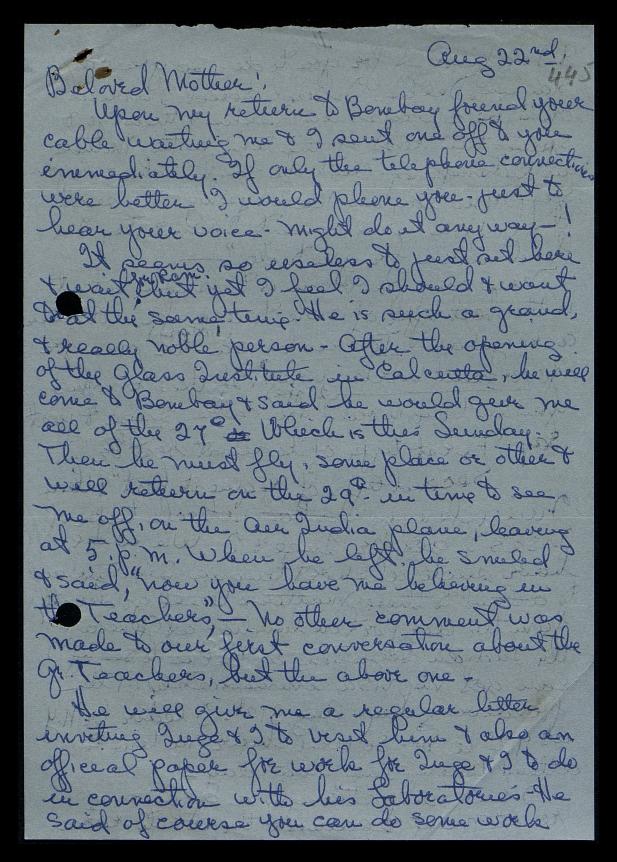 Aug 22nd.
445
Beloved Mother!
Upon my return to Bombay found your
cable waiting me & I sent one off to you
immediately. If only the telephone connections
were better I would phone you - just to
hear your voice - might do it any way - !
It seems so useless to just sit here
& wait but yet I feel I should & want
to at the same time. He is such a grand,
& really noble person - After the opening
of the Glass Institute in Calcutta, he will
come to Bombay & said he would give me
all of the 27th Which is this Sunday.
Then he must fly, some place or other &
will return on the 29th - in time to see
me off, on the Air India plane, leaving
at 5. p.m. When he left, he smiled
& said, "now you have me believing in
the Teachers", - No other comment was
made to our first conversation about the
Gr. Teachers, but the above one -
He will give me a regular letter
inviting Inge & I to visit him & also an
official paper for work for Inge & I to do
in connection with his Laboratories - He
said of course you can do some work